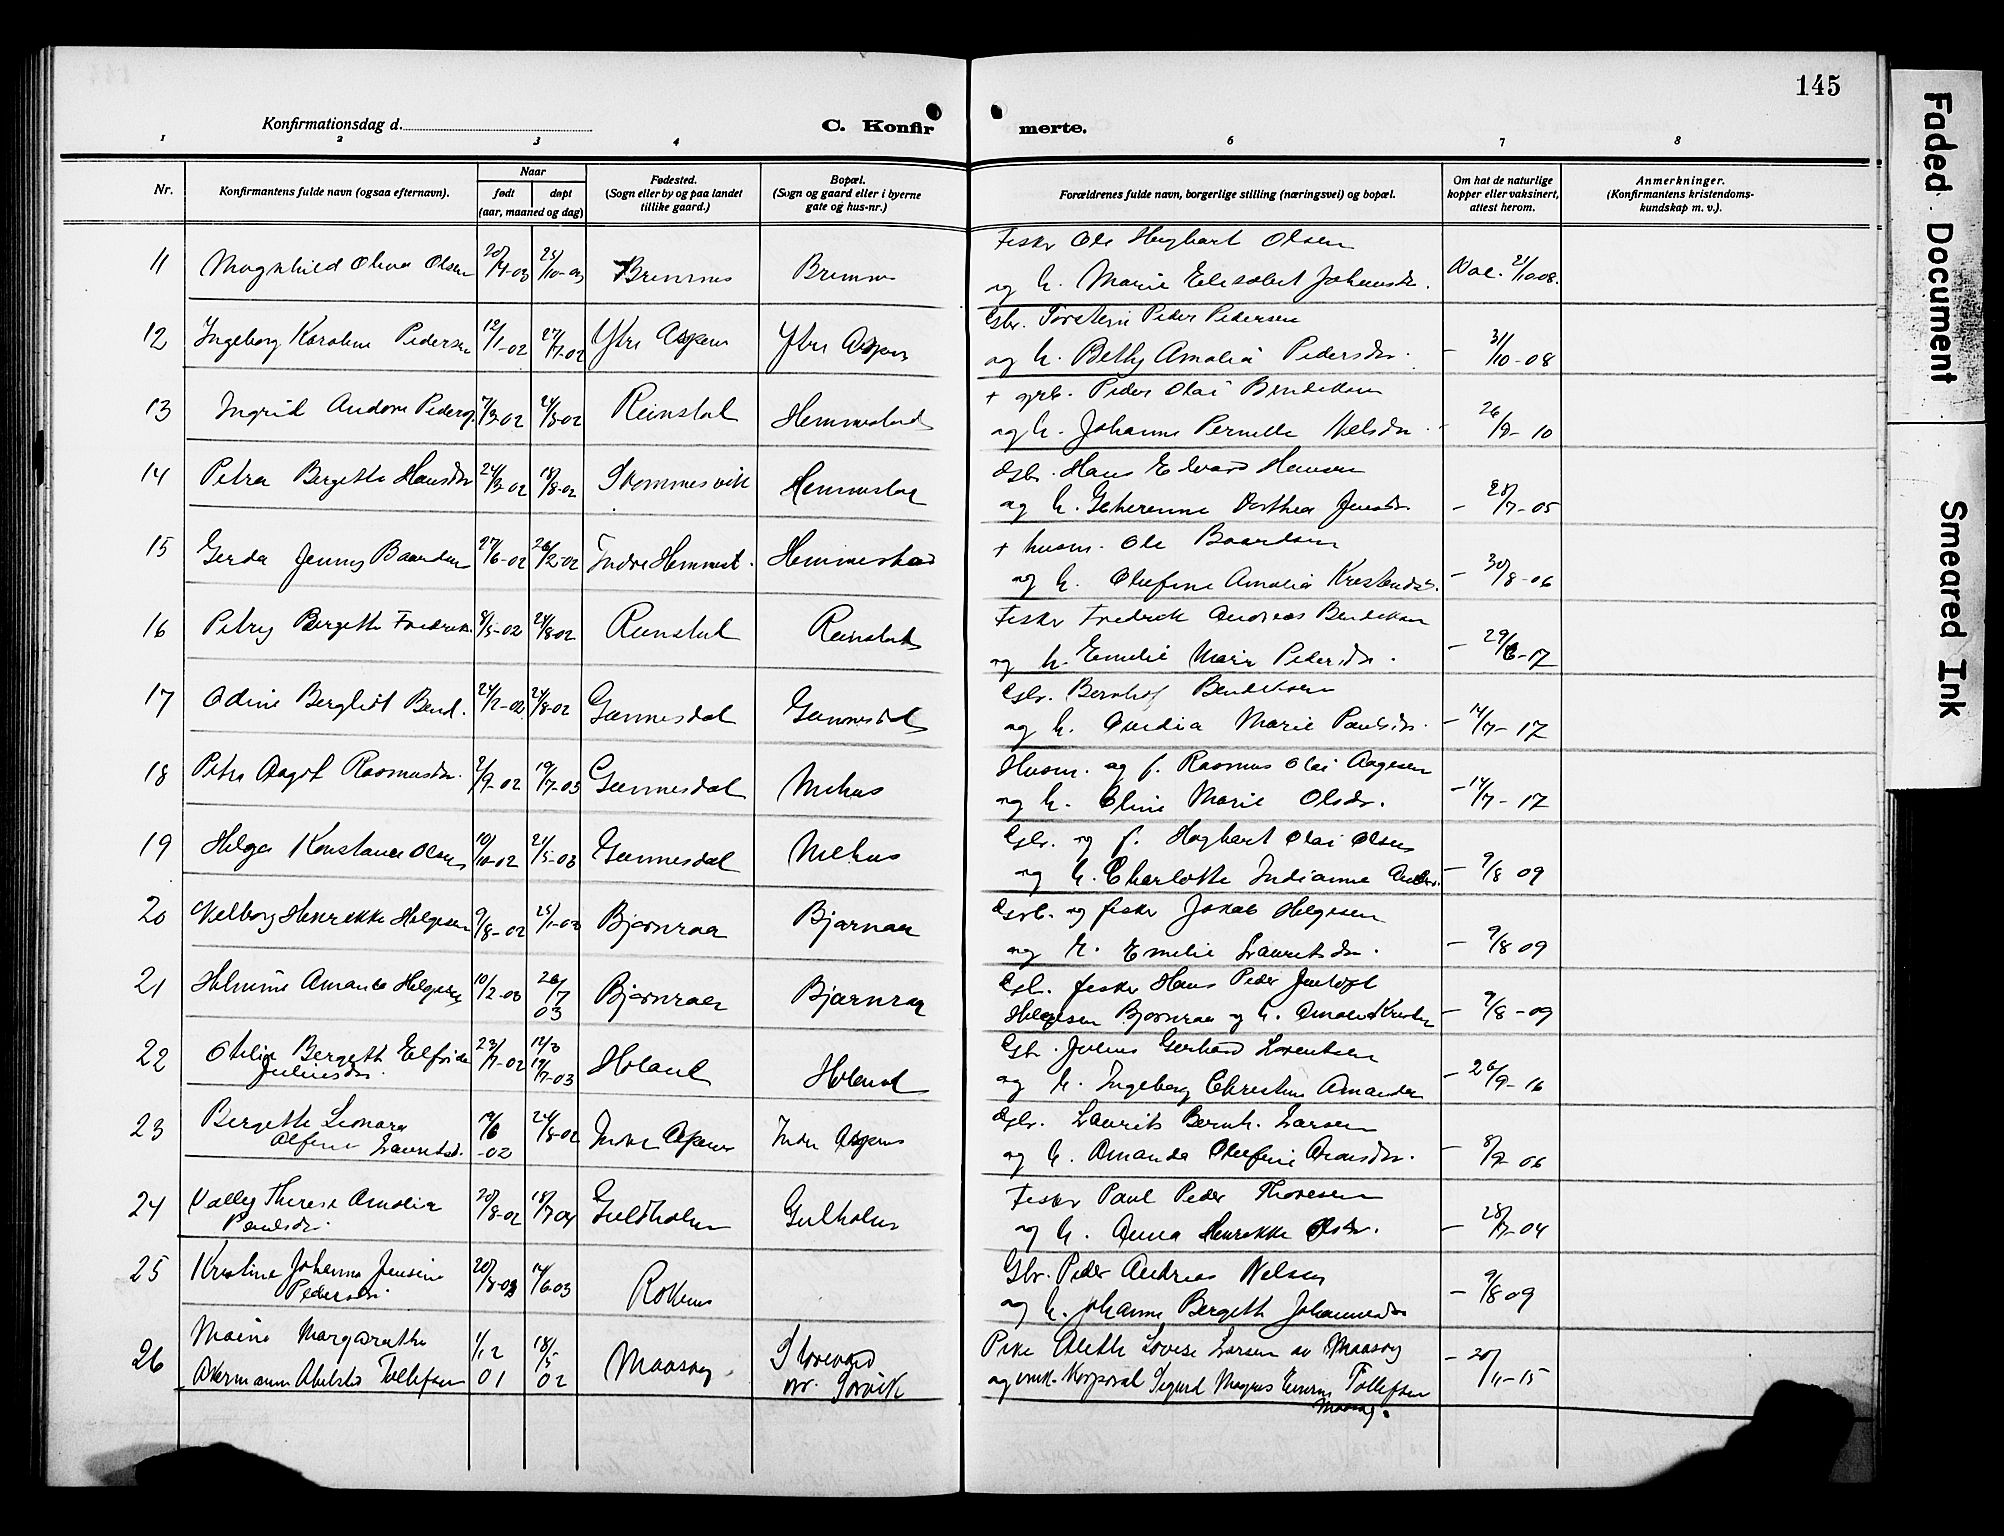 145
Konfirmationsdag d.
C. Konfirmerte.
1 2 3 4 6 7 8
Nr.
Konfirmantens fulde navn (ogsaa efternavn).
Naar
født døpt
(aar, maaned og dag)
Fødested.
(Sogn eller by og paa landet
tillike gaard.)
Bopæl.
(Sogn og gaard eller i byerne
gate og hus-nr.)
Forældrenes fulde navn, borgerlige stilling (næringsvei) og bopæl.
Om hat de naturlige
kopper eller vaksinert,
attest herom.
Anmerkninger.
(Konfirmantens kristendoms-
kundskap m. v.).
Fisker Ole Hagbart Olsen
11 Magnhild Oliva Olsen 25/10-03 Bremnes Bremnes
og h. Marie Elisabet Johansdr. Vac. 21/10 08.
Gbr. Torstein Peder Pedersen
12 Ingeborg Karoline Pedersen 12/1-02 27/7-02 Ytre Aspenes Ytre Aspenes
og h. Betty Amalia Pedersdr. - 31/10-08
+ grb. Peder Olai Bendiksen
13 Ingrid Andora Peders 7/3-02 Reinstad Hemmestad
og h. Johanne Pernille Nielsdr. - 26/9-10
Gbr. Hans Edvard Hansen
14 Petra Bergette Hansdr 24/3-02 18/8-02 Skommesvik Hemmestad
og h. Dorthea Jensdr. - 28/7-05
+ husm. Ole Baardsen
15 Gerda Jenny Baardsen 27/6-02 26/12-02 Indre Hemmest. Hemmestad
og h. Olufine Amalia Kristensdr. - 30/8-06
Fisker Fredrik Andreas Bendiksen
16 Petry Bergette Fredrik. 8/5-02 24/8-02 Reinstad Reinstad
og h. Emelie Marie Pedersdr. - 29/6-17
Gbr. Bernhof Bendiksen
17 Odine Bergliot Bend. 24/8-02 Gannesdal Gannesdal
og h. Marie Paulsdr. - 14/7-17
Husm. og f. Rasmus Olai Aagesen
18 Petra Dagot Rasmusdr. 2/9-02 19/7-03 Gannesdal Mehus
og h. Oline Marie Olsdr. - 14/7-17
Gbr. og f. Hagbart Olai Olsen
19 Helga Konstance Olsen 10/10-02 21/5-03 Gannesdal Mehus
og h. Charlotte Indianne - 9/8 09
Gbr. og fisker Jakob Helgesen
20 Valborg Henrikke Helgesen 9/8-02 25/1-03 Bjørnraa Bjørnraa
og h. Emelie Lauritsdr. - 9/8 09
Gbr. fisker Hans Peder Jentoft
21 Helmine Amanda Helgesen 10/2-03 26/7 03 Bjørnraa Bjørnraa
Helgesen Bjørnraa og h. - 9/8-09
Gbr. Julius Gerhard Lorentsen
22 Otelie Bergeth Elfrida 23/7-02 12/3 19/7-03 Holand Holand
Juliusdr.
og h. Ingeborg Christine Amanda - 26/9-16
Gbr. Laurits Bernh. Larsen
23 Bergette Leonara 19/6 -02 24/8-02 Indre Aspenes Indre Aspenes
Olfine Lauritsd.
og h. Amanda Olufine Aronsdr. - 8/9 06
Fisker Paul Peder Thoresen
24 Vally Therese Amalia 20/8-02 18/7 04 Guldholmen Gulholmen
Paulsdr.
og h. Anna Henrikke Olsdr. - 28/7-04
Gbr. Peder Andreas Nelsen
25 Kristine Johanna Jensine 14/6-03 Rokenes
Pedersdr.
og h. Johanne Bergeth Johannesdr - 9/8 09
Pike Aleth Lovise Larsen av Maasøy
26 Maine Margarethe 1/12 01 18/5 02 Maasøy
Akermann Tollefsen
og Korporal Sigurd Magnus Tollefsen - 20/11-15
Maasøy.
Faded Document
Smeared Ink